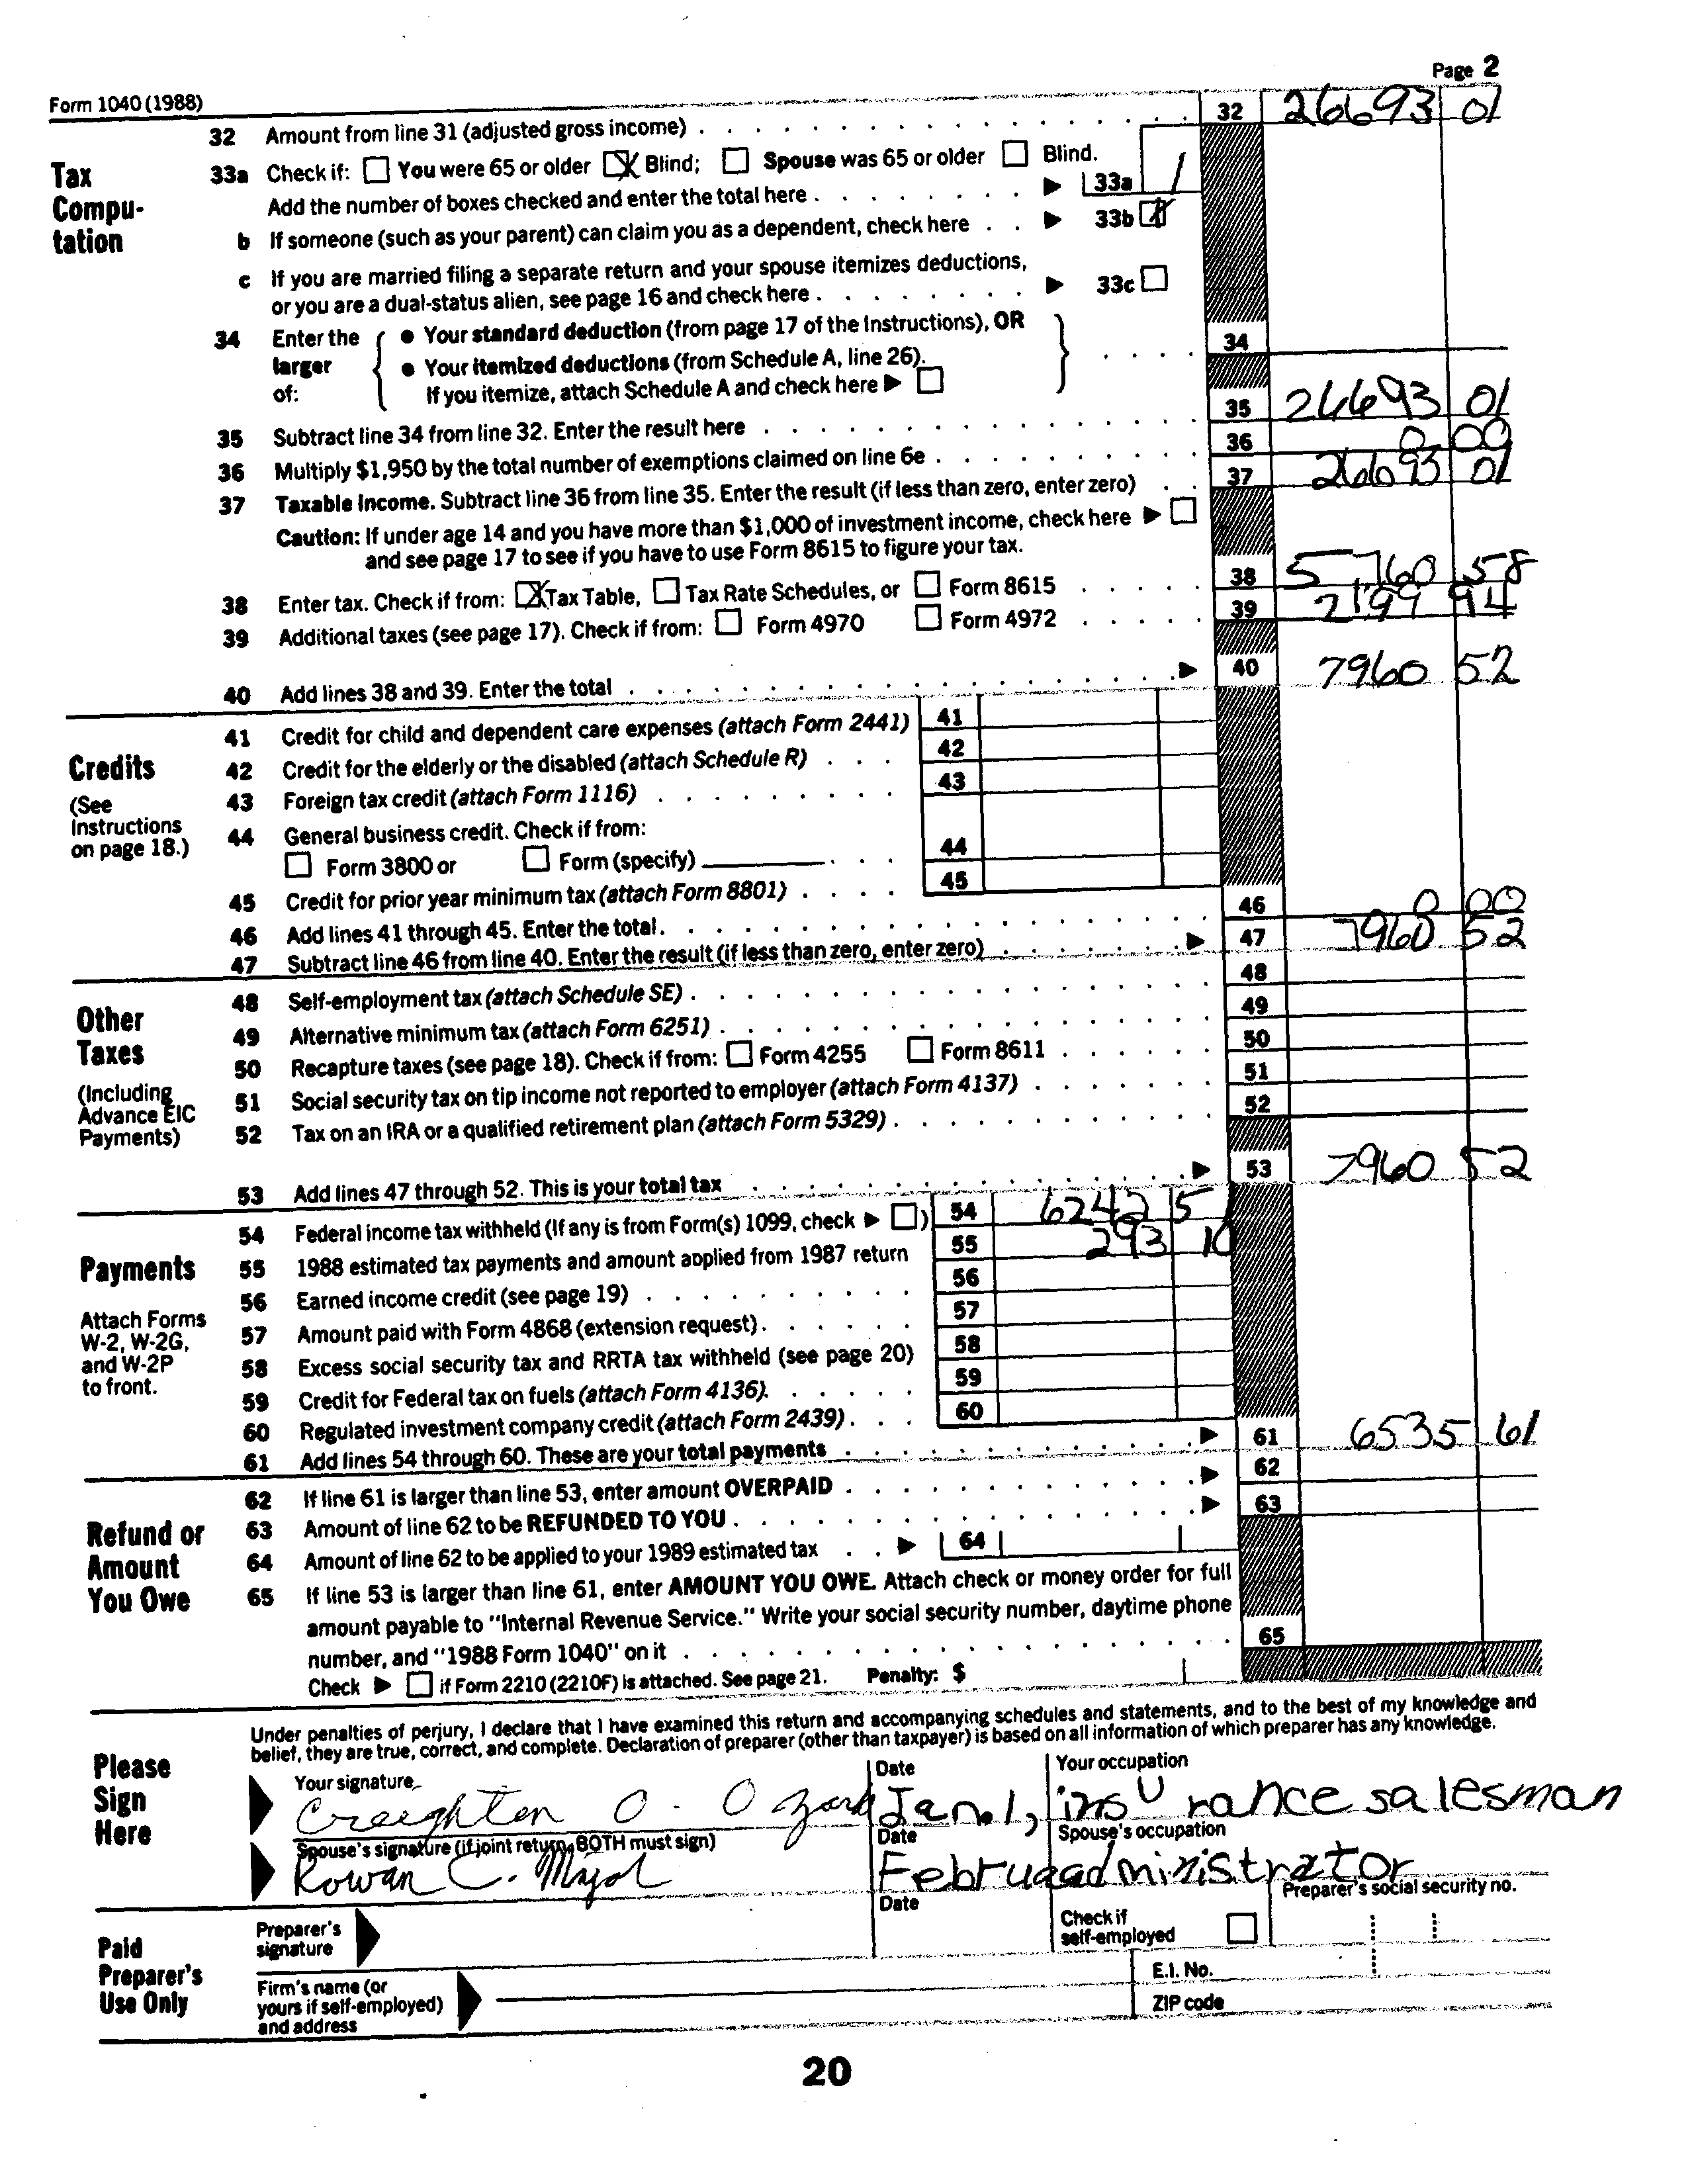 Page 2
Form 1040 (1988)
32 Amount from line 31 (adjusted gross income) 32 26693 01
Tax Compu-tation
33a Check if: You were 65 or older X Blind; Spouse was 65 or older Blind.
Add the number of boxes checked and enter the total here 33a 1
b If someone (such as your parent) can claim you as a dependent, check here 33b X
c If you are married filing a separate return and your spouse itemizes deductions,
or you are a dual-status alien, see page 16 and check here 33c
34 Enter the larger of:
• Your standard deduction (from page 17 of the Instructions), OR
• Your itemized deductions (from Schedule A, line 26).
If you itemize, attach Schedule A and check here ▶
34
35 Subtract line 34 from line 32. Enter the result here 35 26693 01
36 Multiply $1,950 by the total number of exemptions claimed on line 6e 36 0 00
37 Taxable income. Subtract line 36 from line 35. Enter the result (if less than zero, enter zero) 37 26693 01
Caution: If under age 14 and you have more than $1,000 of investment income, check here ▶
and see page 17 to see if you have to use Form 8615 to figure your tax.
38 Enter tax. Check if from: X Tax Table, Tax Rate Schedules, or Form 8615 38 5,760 58
39 Additional taxes (see page 17). Check if from: Form 4970 Form 4972 39 2199 94
40 Add lines 38 and 39. Enter the total ▶ 40 7960 52
Credits
(See Instructions on page 18.)
41 Credit for child and dependent care expenses (attach Form 2441) 41
42 Credit for the elderly or the disabled (attach Schedule R) 42
43 Foreign tax credit (attach Form 1116) 43
44 General business credit. Check if from:
Form 3800 or Form (specify) 44
45 Credit for prior year minimum tax (attach Form 8801) 45
46 Add lines 41 through 45. Enter the total. 46 0 00
47 Subtract line 46 from line 40. Enter the result (if less than zero, enter zero) ▶ 47 7960 52
Other Taxes
(Including Advance EIC Payments)
48 Self-employment tax (attach Schedule SE) 48
49 Alternative minimum tax (attach Form 6251) 49
50 Recapture taxes (see page 18). Check if from: Form 4255 Form 8611 50
51 Social security tax on tip income not reported to employer (attach Form 4137) 51
52 Tax on an IRA or a qualified retirement plan (attach Form 5329) 52
53 Add lines 47 through 52. This is your total tax ▶ 53 7960 52
Payments
Attach Forms W-2, W-2G, and W-2P to front.
54 Federal income tax withheld (If any is from Form(s) 1099, check ▶ ) 54 6242 51
55 1988 estimated tax payments and amount applied from 1987 return 55 293 10
56 Earned income credit (see page 19) 56
57 Amount paid with Form 4868 (extension request) 57
58 Excess social security tax and RRTA tax withheld (see page 20) 58
59 Credit for Federal tax on fuels (attach Form 4136) 59
60 Regulated investment company credit (attach Form 2439) 60
61 Add lines 54 through 60. These are your total payments ▶ 61 6535 61
Refund or Amount You Owe
62 If line 61 is larger than line 53, enter amount OVERPAID ▶ 62
63 Amount of line 62 to be REFUNDED TO YOU ▶ 63
64 Amount of line 62 to be applied to your 1989 estimated tax ▶ 64
65 If line 53 is larger than line 61, enter AMOUNT YOU OWE. Attach check or money order for full
amount payable to "Internal Revenue Service." Write your social security number, daytime phone
number, and "1988 Form 1040" on it 65
Check ▶ if Form 2210 (2210F) is attached. See page 21. Penalty: $
Please Sign Here
Under penalties of perjury, I declare that I have examined this return and accompanying schedules and statements, and to the best of my knowledge and
belief, they are true, correct, and complete. Declaration of preparer (other than taxpayer) is based on all information of which preparer has any knowledge.
Your signature Date Your occupation
Creighton O. Ozark Jan. 1, insurance salesman
Spouse's signature (if joint return, BOTH must sign) Date Spouse's occupation
Rowan C. Major Februa administrator
Paid Preparer's Use Only
Preparer's signature Date Check if self-employed Preparer's social security no.
Firm's name (or yours if self-employed) and address E.I. No.
ZIP code
20